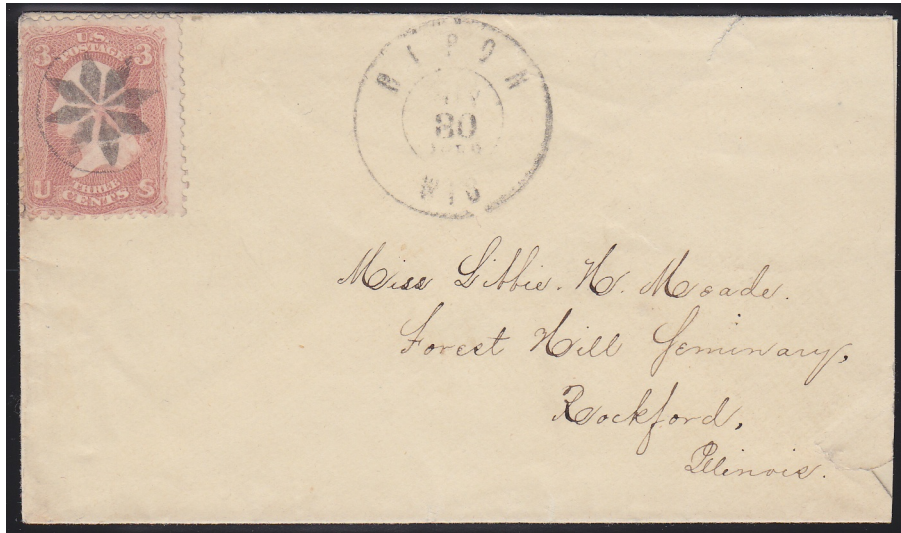 3 U.S. 3
POSTAGE
U THREE S
CENTS
RIPON
30
WIS
Miss Libbie. H. Meade.
Forest Hill Seminary,
Rockford,
Illinois.